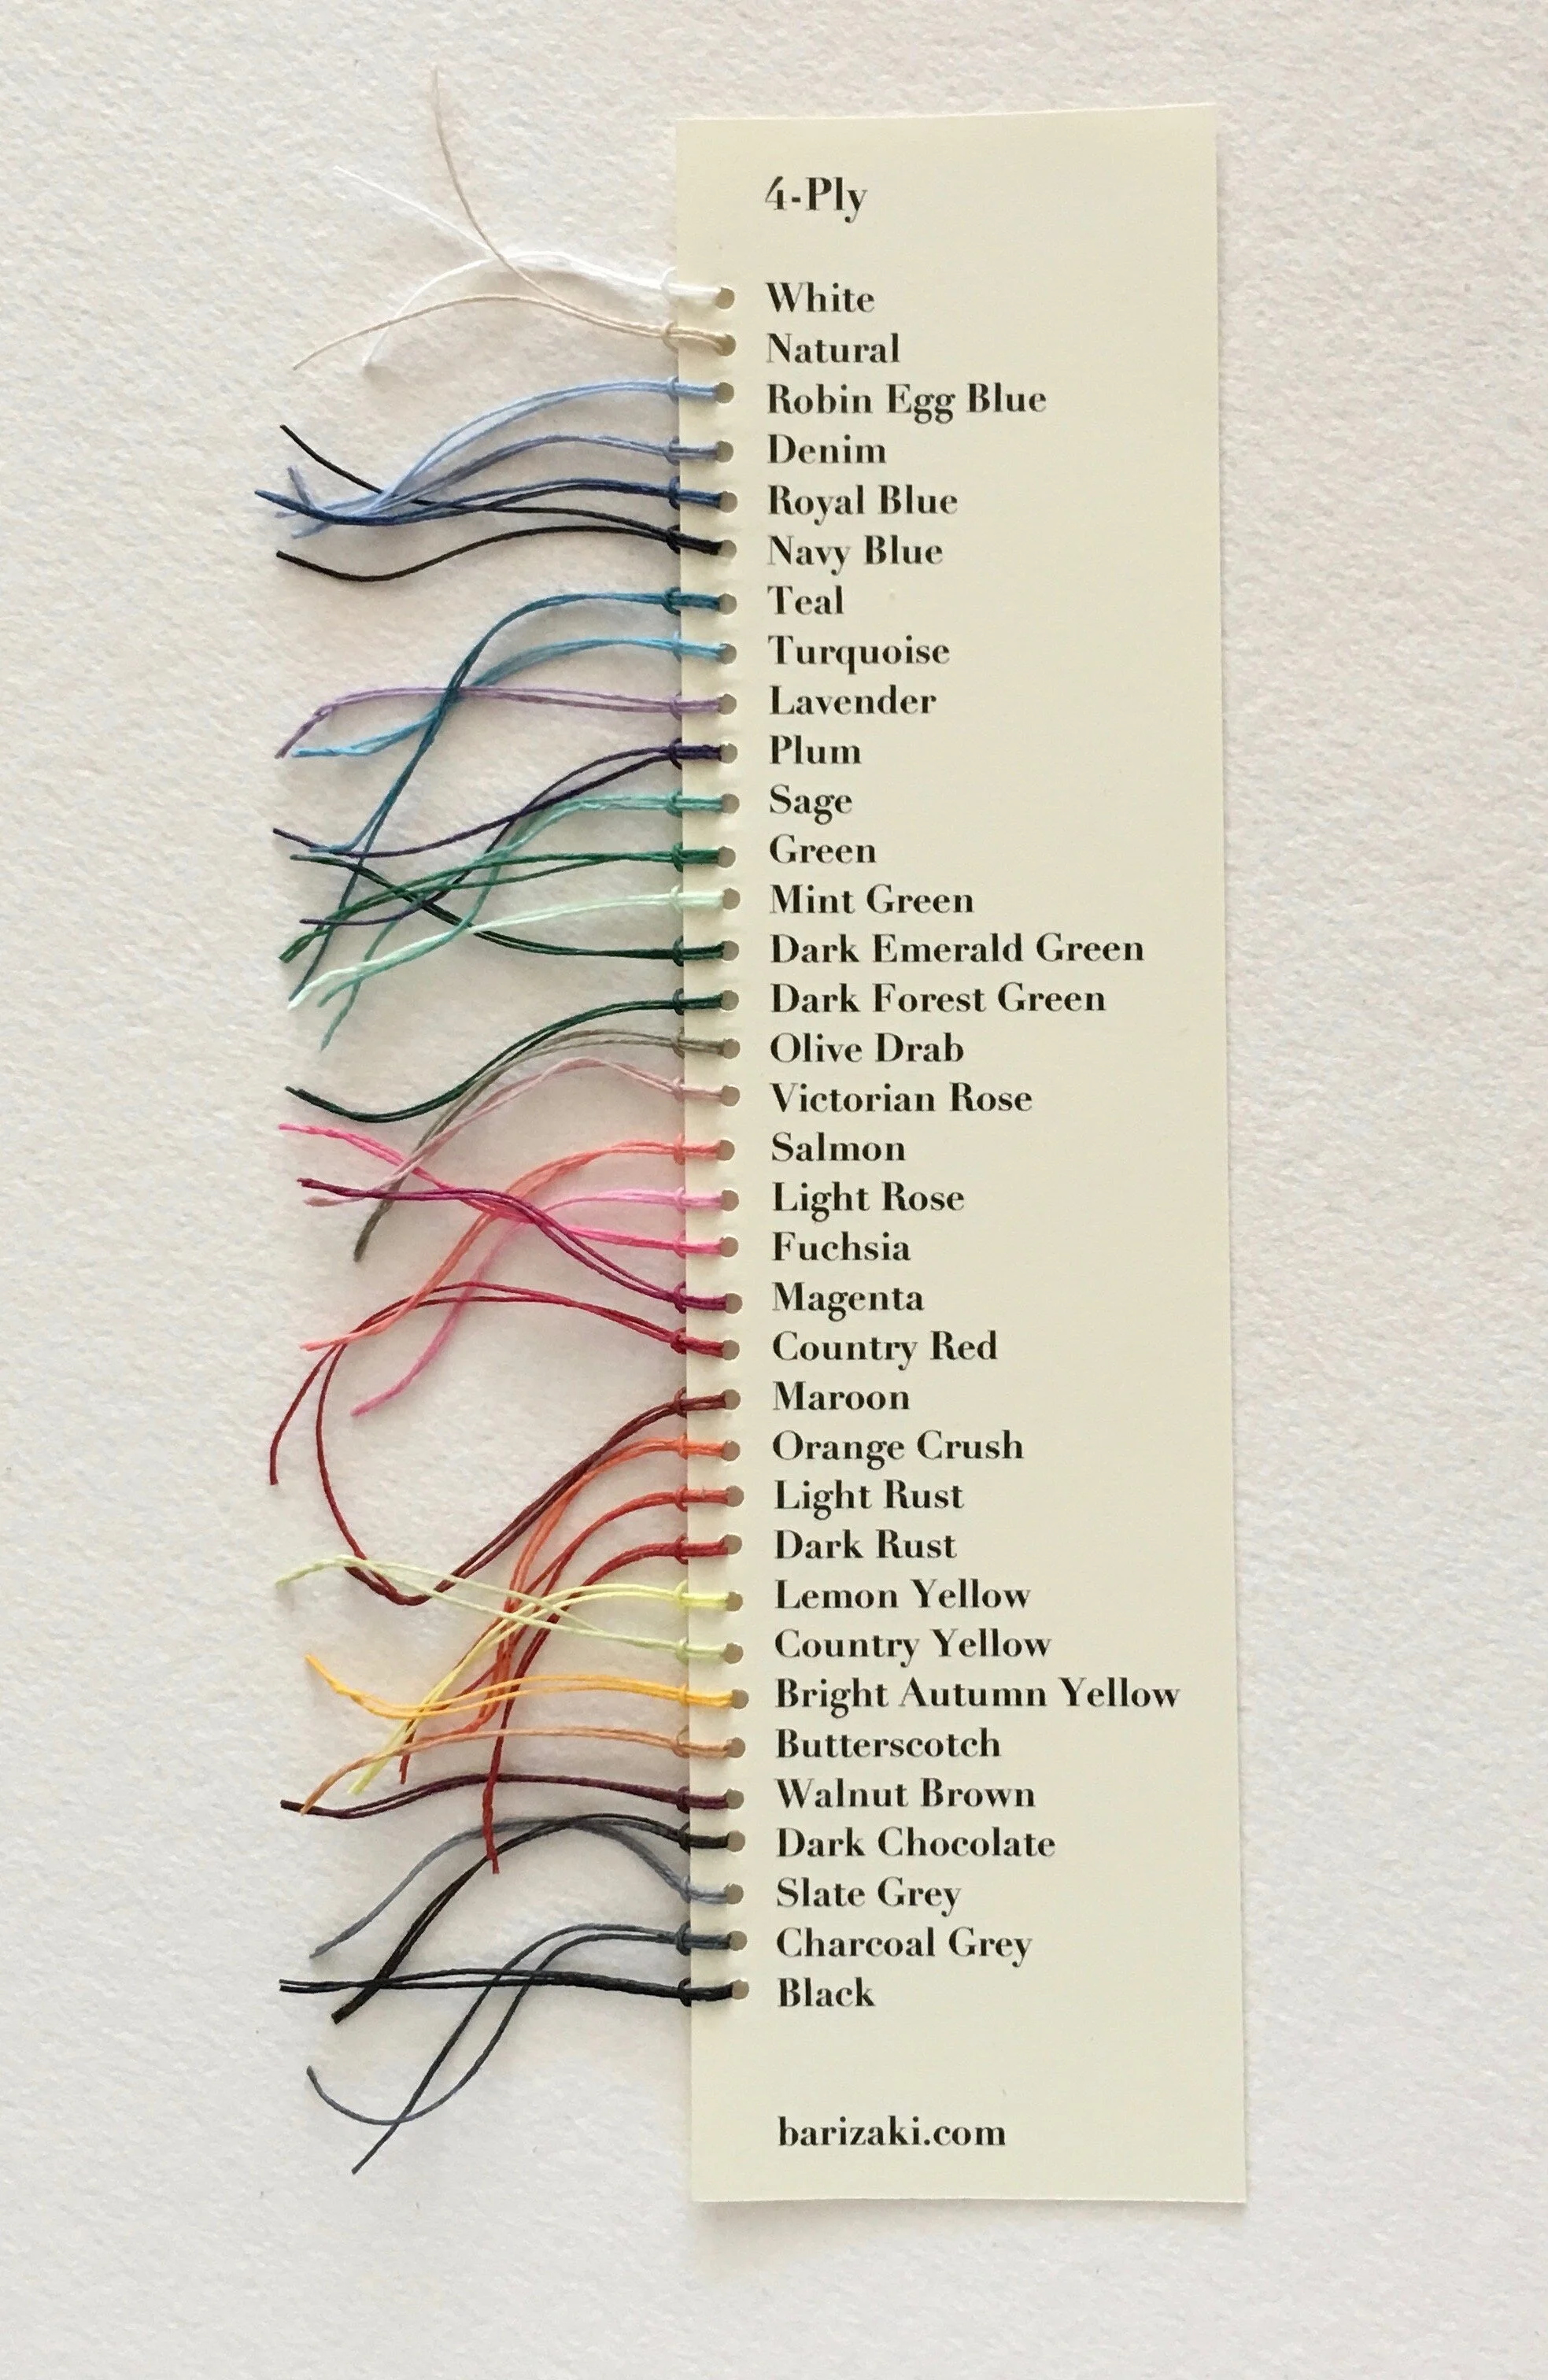 4-Ply
White
Natural
Robin Egg Blue
Denim
Royal Blue
Navy Blue
Teal
Turquoise
Lavender
Plum
Sage
Green
Mint Green
Dark Emerald Green
Dark Forest Green
Olive Drab
Victorian Rose
Salmon
Light Rose
Fuchsia
Magenta
Country Red
Maroon
Orange Crush
Light Rust
Dark Rust
Lemon Yellow
Country Yellow
Bright Autumn Yellow
Butterscotch
Walnut Brown
Dark Chocolate
Slate Grey
Charcoal Grey
Black
barizaki.com